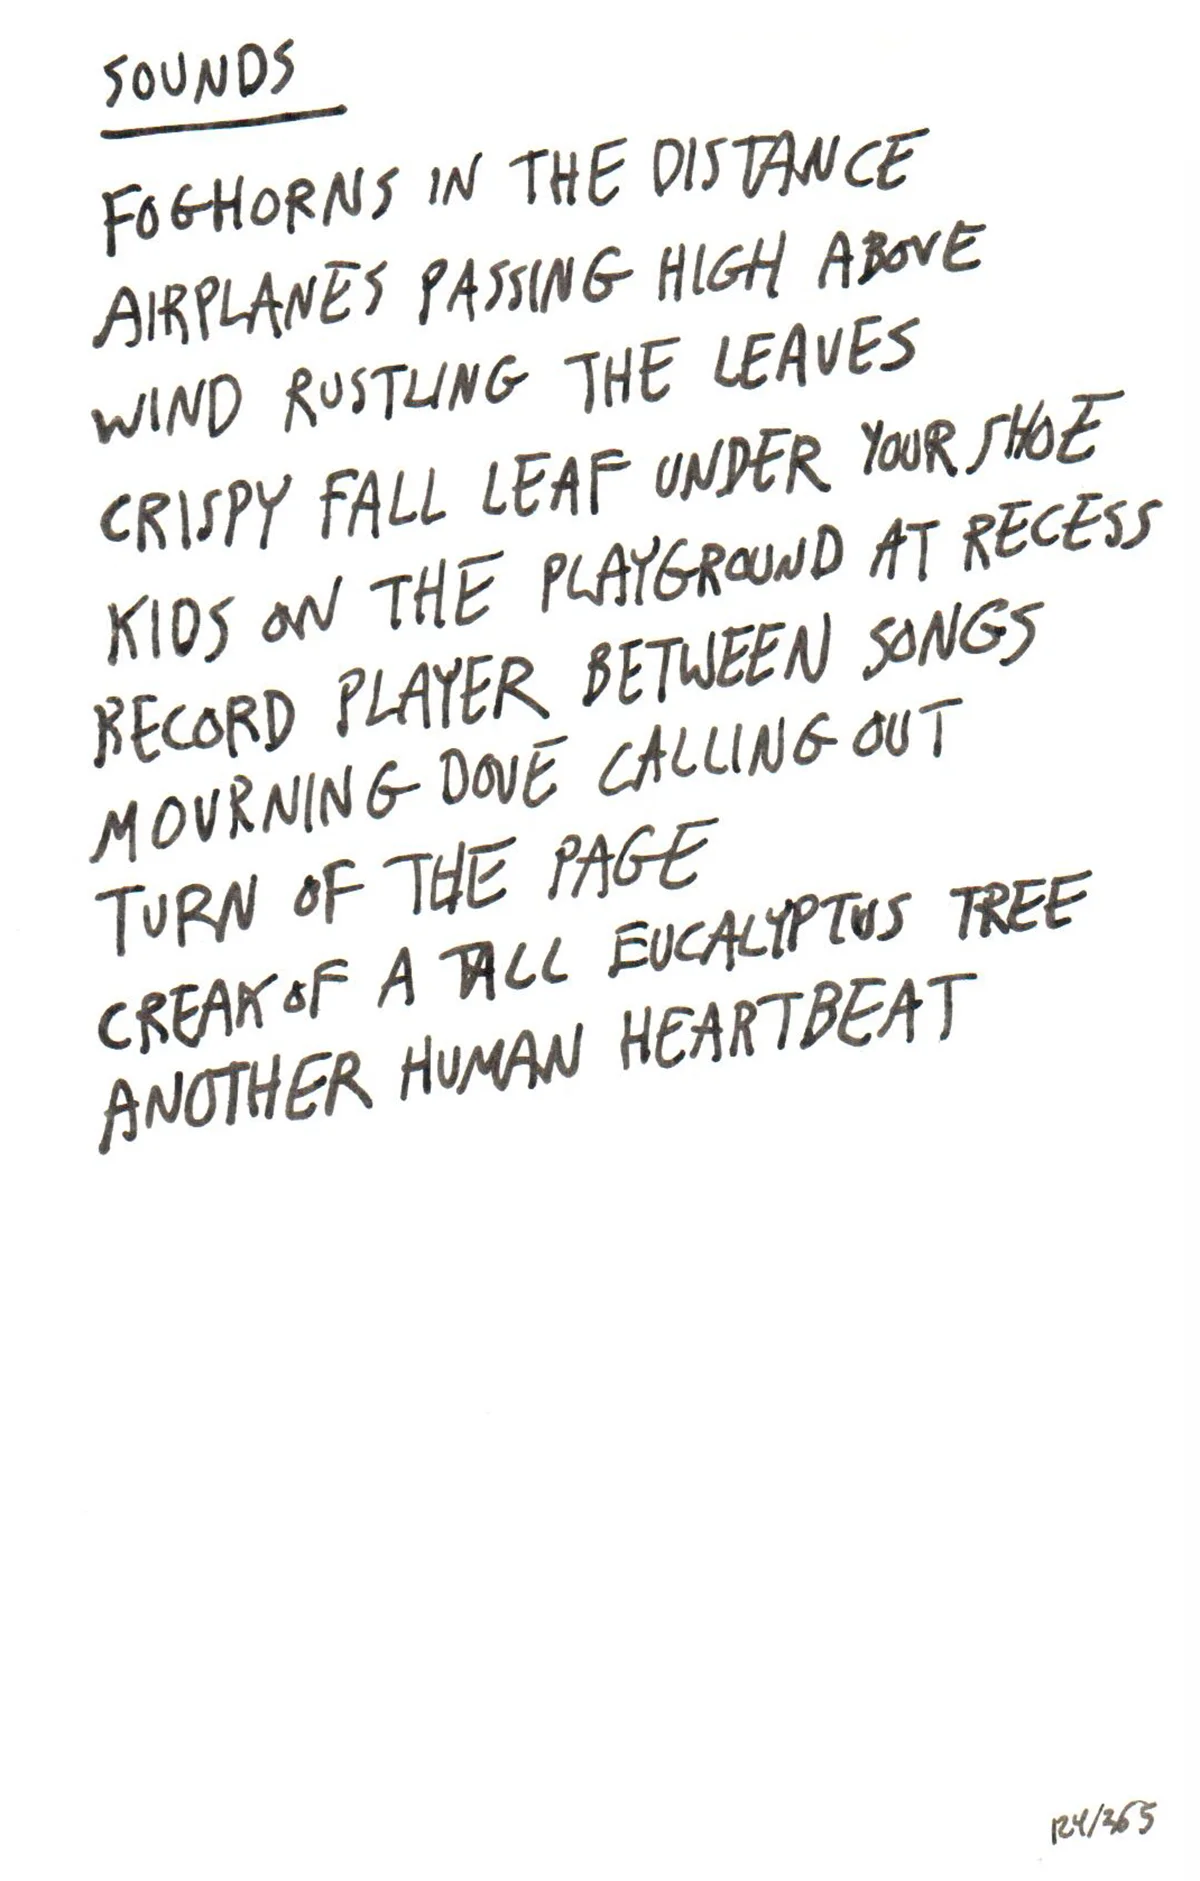 SOUNDS
FOGHORNS IN THE DISTANCE
AIRPLANES PASSING HIGH ABOVE
WIND RUSTLING THE LEAVES
CRISPY FALL LEAF UNDER YOUR SHOE
KIDS ON THE PLAYGROUND AT RECESS
RECORD PLAYER BETWEEN SONGS
MOURNING DOVE CALLING OUT
TURN OF THE PAGE
CREAK OF A TALL EUCALYPTUS TREE
ANOTHER HUMAN HEARTBEAT
124/365